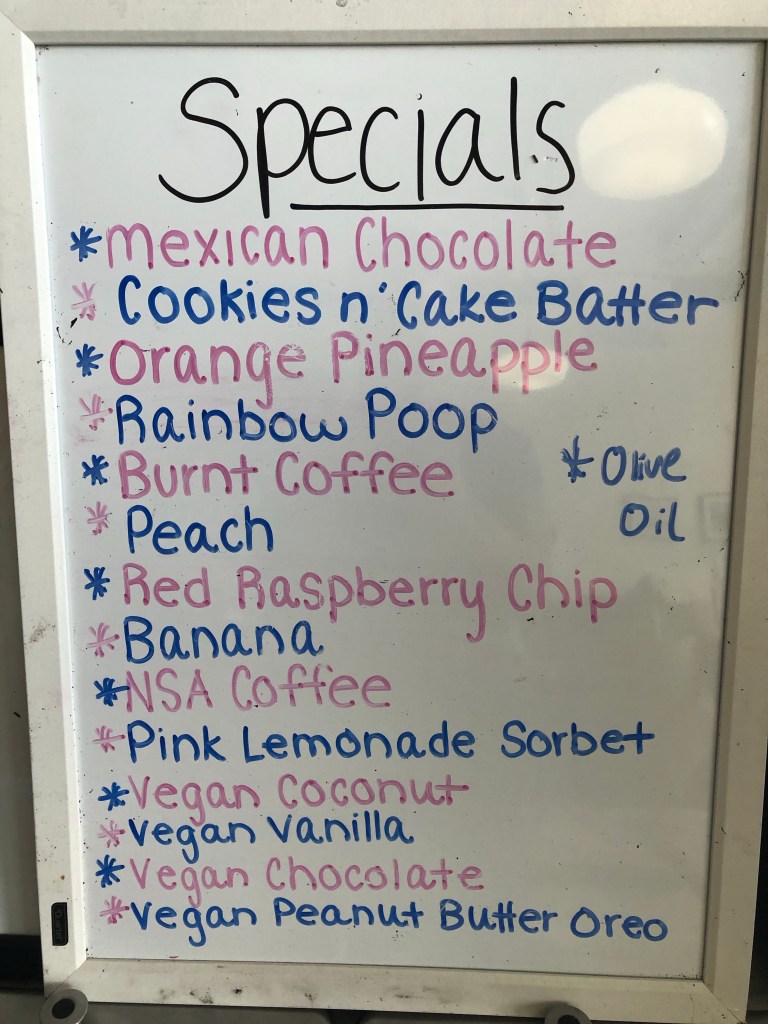 Specials
*Mexican Chocolate
* Cookies n' Cake Batter
*Orange Pineapple
*Rainbow Poop
*Burnt Coffee
*Olive
Oil
* Peach
*Red Raspberry Chip
*Banana
*NSA Coffee
*Pink Lemonade Sorbet
*Vegan Coconut
*Vegan Vanilla
*Vegan Chocolate
*Vegan Peanut Butter Oreo